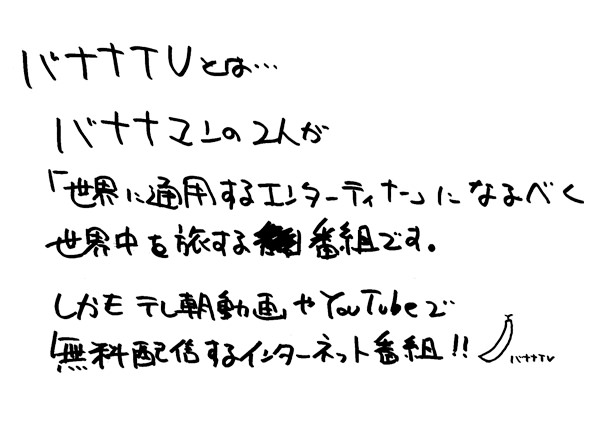 バナナTVとは…
バナナマンの2人が
「世界に通用するエンターティナー」になるべく
世界中を旅する番組です。
しかもテレ朝動画やYouTubeで
「無料配信するインターネット番組!!
バナナTV